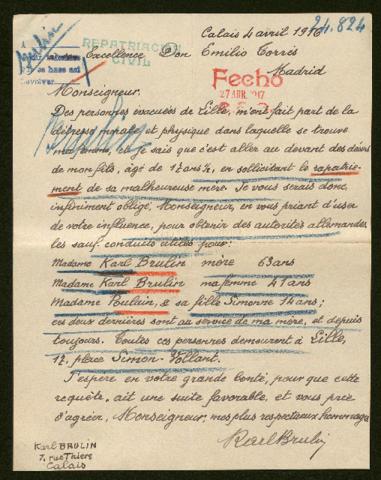 Calais 4 avril 1916
24.824
Brulin
REPATRIACION
CIVIL
Excellence Don Emilio Torrès
Madrid
Fecho
27 ABR. 1917
Monseigneur.
Des personnes évacuées de Lille, m'ont fait part de la
détresse morale et physique dans laquelle se trouve
ma femme, je sais que c'est aller au devant des désirs
de mon fils, âgé de 17 ans ½, en sollicitant le rapatrie-
ment de sa malheureuse mère. Je vous serais donc
infiniment obligé, Monseigneur, en vous priant d'user
de votre influence, pour obtenir des autorités allemandes
les sauf. conduits utiles pour:
Madame Karl Brulin mère 63 ans
Madame Karl Brulin ma femme 41 ans
Madame Poulain, & sa fille Simonne 14 ans;
ces deux dernières sont au service de ma mère, et depuis
toujours. Toutes ces personnes demeurent à Lille,
17, place Simon-Vollant.
J'espère en votre grande bonté, pour que cette
requête, ait une suite favorable, et vous prie
d'agréer, Monseigneur, mes plus respectueux hommages
Karl Brulin
Karl BRULIN
7, rue Thiers
Calais